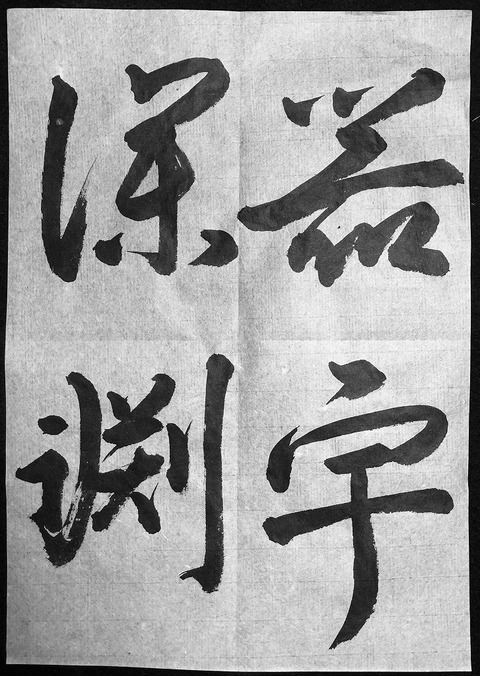 器宇
深渊